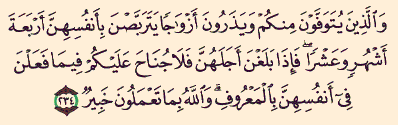 وَٱلَّذِينَ يُتَوَفَّوۡنَ مِنكُمۡ وَيَذَرُونَ أَزۡوَٰجٗا يَتَرَبَّصۡنَ بِأَنفُسِهِنَّ أَرۡبَعَةَ
أَشۡهُرٖ وَعَشۡرٗاۖ فَإِذَا بَلَغۡنَ أَجَلَهُنَّ فَلَا جُنَاحَ عَلَيۡكُمۡ فِيمَا فَعَلۡنَ
فِيٓ أَنفُسِهِنَّ بِٱلۡمَعۡرُوفِۗ وَٱللَّهُ بِمَا تَعۡمَلُونَ خَبِيرٞ ٢٣٤